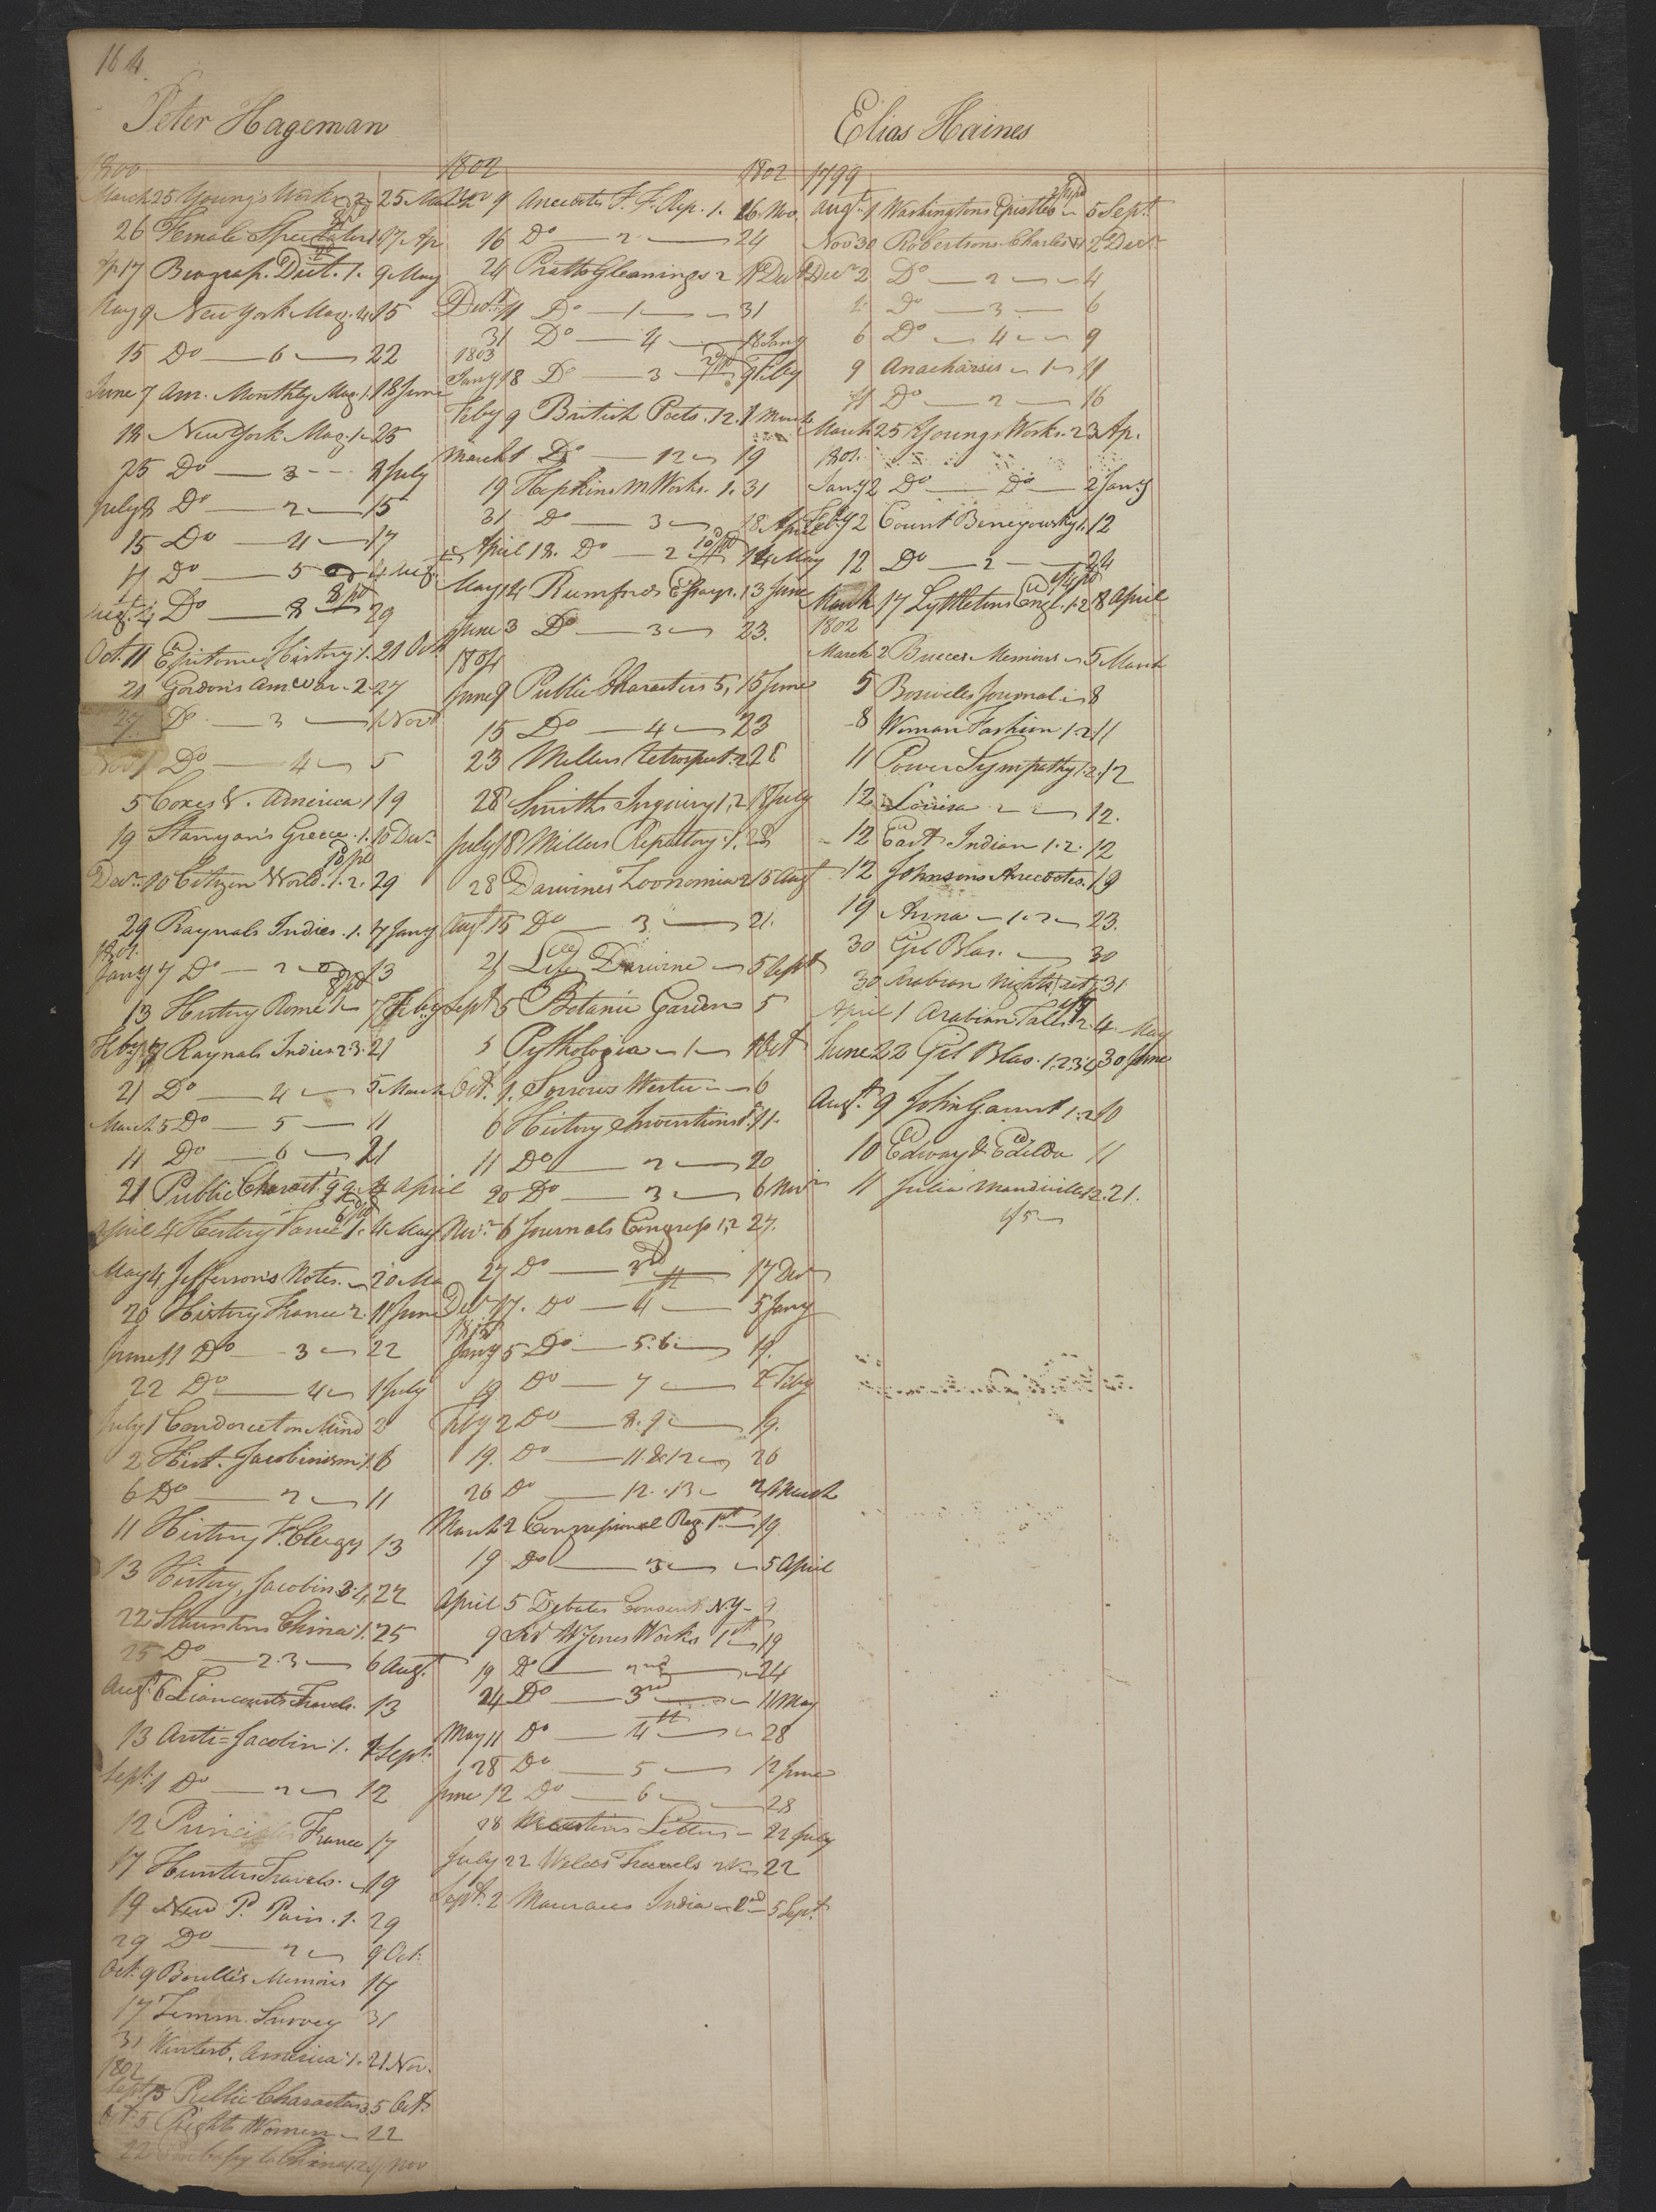 164
Peter Hageman
1800
March 25 Youngs Works 2 25 Ma
26 Female Spectator 1 17 Ap
Ap 17 Biograp. Dict. 1. 9 May
May 9 New York Mag. 4. 15
15 Do — 6 — 22
June 7 Am. Monthly Mag. 1. 18 June
18 New York Mag. 1 25
25 Do — 3 — 8 July
July 8 Do — 2 — 15
15 Do — 4 — 17
17 Do — 5 — 4 Aug.
Augt. 4 Do — 8 — 29
Oct. 11 Epitome History 1. 21 Oct
21 Gordon's Am War. 2. 27
27 Do — 3 — 1 Novr
Nov 1 Do — 4 — 5
5 Coxes V. America 1 19
19 Stanyan's Greece. 1. 10 Decr
Decr. 10 Citizen World. 1. 2. 29
29 Raynals Indies. 1. 7 Jany
1801.
Jany 7 Do — 2 — 13
13 History Rome 1 — 7 Feby
Feby 7 Raynals Indies 2.3. 21
21 Do — 4 — 5 March
March 5 Do — 5 — 11
11 Do — 6 — 21
21 Public Charact. 4 April
April 4 History France 1. 4 May
May 4 Jefferson's Notes. — 20 Ma
20 History France 2. 11 June
June 11 Do — 3 — 22
22 Do — 4 — 1 July
July 1 Condorcet on Mind 2
2 Hist. Jacobinism 1. 6
6 Do — 2 — 11
11 History F. Clergy 13
13 History, Jacobin 3. 4. 22
22 Stauntons China 1. 25
25 Do — 2.3 — 6 Augt.
Augt. 6 Liancourts Travels. 13
13 Anti=Jacobin 1. 1 Sept.
Sept. 1 Do — 2 — 12
12 Principles France 17
17 Hunters Travels. — 19
19 New P. Pain. 1. 29
29 Do — 2 — 9 Oct.
Oct. 9 Memoirs 17
17 Zimm. Survey 31
31 Winterb. America 1. 21 Nov.
1802
Sept. 15 Public Characters 3. 5 Oct.
Oct. 5 Rights Women — 22
22 Embassy to China 1. Nov
1802 1802
Nov 9 Anecdotes F. F. Rep. 1. 16. Nov.
16 Do — 2 — 24
24 Pratts Gleanings 2 11 Decr
Decr. 11 Do — 1 — 31
31 Do — 4 — 18 Jany
1803
Jany 18 Do — 3 — 9 Feby
Feby 9 British Poets. 12. 1 March
March 1 Do — 12 — 19
19 Hopkins M Works. 1. 31
31 Do — 3 — 18. April
April 18. Do — 2 14 May
May 14 Rumfords Essays. 1 3 June
June 3 Do — 3 — 23.
1804
June 9 Public Characters 5, 15 June
15 Do — 4 — 23
23 Millers Retrospect. 2 28
28 Smiths Inquiry 1, 2 18 July
July 18 Millers Repository. 1. 28
28 Darwines Zoonomia 2 15 Augt
Augt. 15 Do — 3 — 21.
21 Life Darwine — 5 Sept
Sept 5 Botanic Garden 5
5 Pythologia — 1 — 1 Oct
Oct. 1. Sorrows Werter — 6
6 History Inventions 1. 11.
11 Do — 2 — 20
20 Do — 3 — 6 Novr
Novr 6 Journals Congress 1, 2 27.
27 Do — 3rd — 17 Decr
Decr 17. Do — 4th — 5 Jany
1805
Jany 5 Do — 5.6 — 19.
19 Do — 7 — 2 Feby
Feby 2 Do — 8.9 — 19.
19. Do — 11 & 12 — 26
26 Do — 12. 13 — 2 March
March 2 Congressional Reg. 1st — 19
19 Do — 3 — 5 April
April 5 Debates Convent. N.Y — 9
9 Sir W Jones Works 1st — 19
19 Do — 2nd — 24
24 Do — 3rd — 11 May
May 11 Do — 4th — 28
28 Do — 5 — 12 June
June 12 Do — 6 — 28
28 Letters — 22 July
July 22 Welds Travels 22
Sept. 2 Maurices India — 2nd — 5 Sept.
Elias Haines
1799
Augt. 1 Washingtons Epistles — 5 Sept.
Nov 30 Robertsons Charles 1 2 Decr
Decr 2 Do — 2 — 4
4 Do — 3 — 6
6 Do — 4 — 9
9 Anacharsis — 1 — 11
11 Do — 2 — 16
March 25 Youngs Works. 2 3 Ap.
1801.
Jany 2 Do — Do — 2 Jany
Feby 2 Count Beneyowsky 1. 12
12 Do — 2 — 24
March 17 Lyttletons Engl. 1.2 8 April
1802
March 2 Memoirs — 5 March
5 Boswells Journal — 8
8 Woman Fashion 1.2 11
11 Power Sympathy 1.2. 12
12 Louisa — 12.
12 East Indian 1.2. 12
12 Johnsons Anecdotes. 19
19 Anna — 1. 2 — 23.
30 Gil Blas. — 30
30 Arabian Nights 31
April 1 Arabian Tales 4 May
June 22 Gil Blas. 1.2.3.4. 30 June
Augt. 9 John Gaunt 1.2 10
10 Edway & Edilda 11
11 Julia Mandiville 1 2. 21.